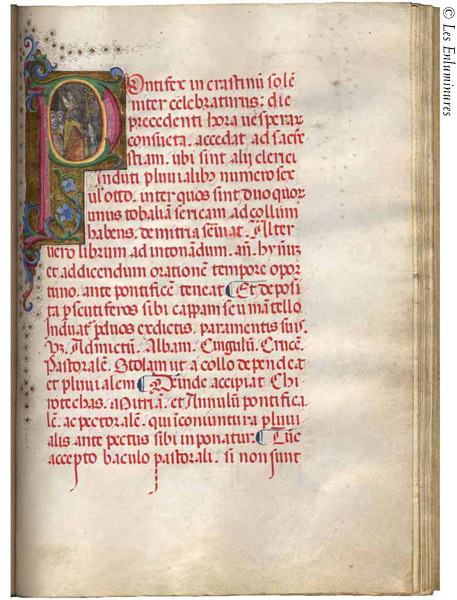 Pontifex in crastinũ solẽ
niter celebraturus: die
precedenti hora uesperarũ
consueta. accedat ad sacri
stiam. ubi sint alij clerici
induti pluuialibꝫ numero sex
uł otto. inter quos sint duo quor
unus tobaliã sericam ad collum
habens. de mitria seruiat. Alter
uero librum ad intonãdum. añ. hyñũꝫ
et addicendum orationẽ tempore opor
tuno. ante pontificẽ teneat Et deposi
ta p scutiferos sibi cappam seu mantello
Induat paramentis suis.
Vꝫ. Admictũ. Albam. Cingulũ. Crucẽ
Pastoralẽ. Stolam ut a collo dependeat
et pluuialem Deinde accipiat Chi
rotechas. Mitriã. et Annulũ pontifica
lẽ. ac pectoralẽ. qui coniuntura pluui
alis ante pectus sibi inponatur Tũc
accepto baculo pastorali. si non sunt
© Les Enluminures